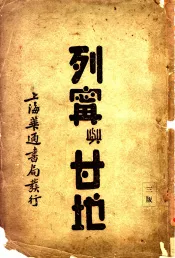 列甯與甘地
上海華通書局發行
三版